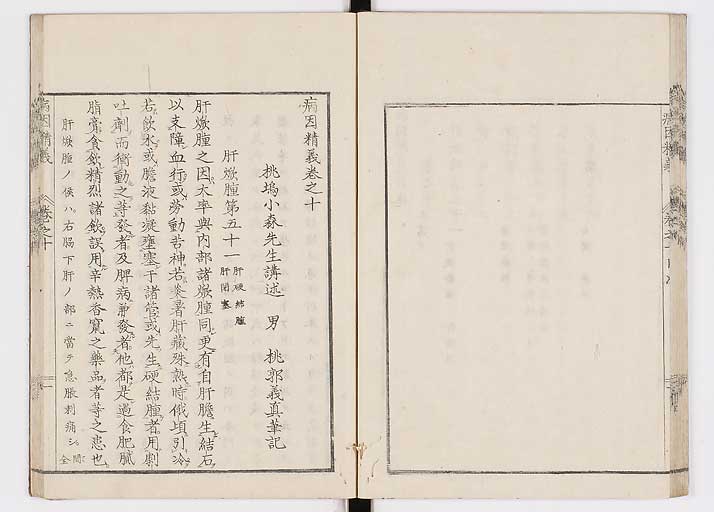 病因精義卷之十
桃塢小森先生講述 男 桃郭義真筆記
肝焮腫第五十一 肝硬結腫 肝閉塞
肝焮腫之因大率與内部諸焮腫同更有自肝膽生結石
以支障血行或勞動苦神若炎暑肝藏殊熱時俄頃引冷
若飲水或膽液黏凝壅塞于諸管或先生硬結腫者用劇
吐劑而衝動之等發者及脾病兼發者他都是過食肥膩
脂膏貪飲精烈諸飲誤用辛熱香竄之藥品者等之悪也
肝焮腫ノ候ハ右脇下肝ノ部ニ當テ急脹刺痛シ
病因精義 卷之十 一
病因精義